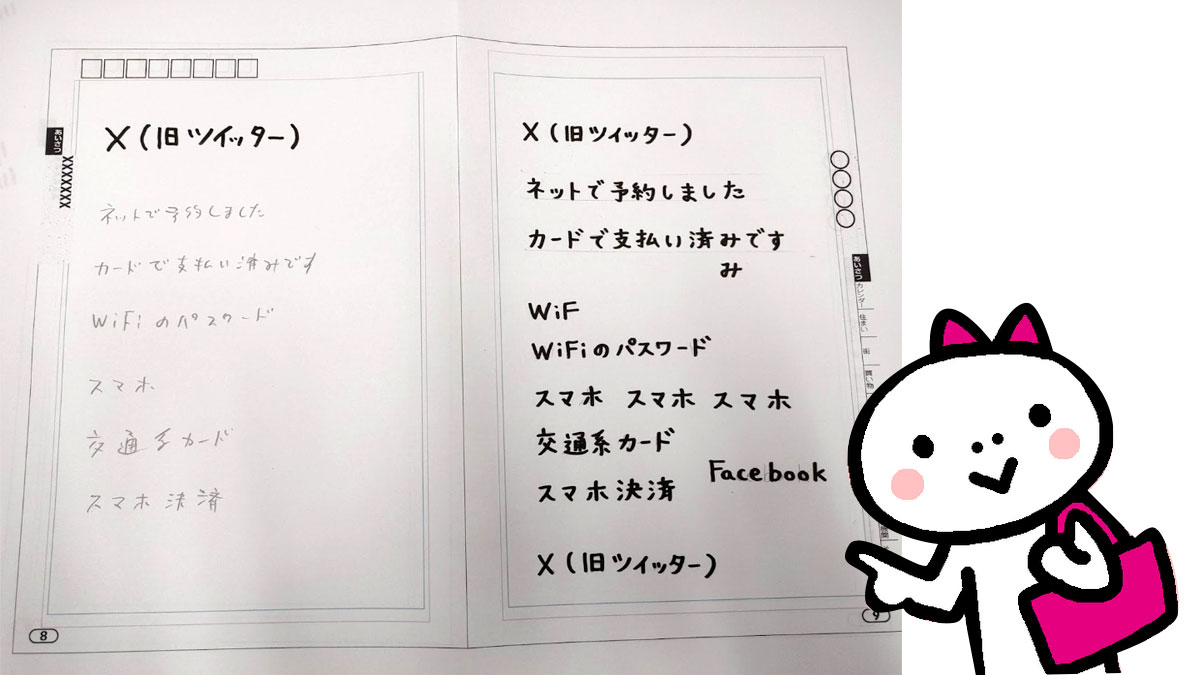 あいさつ
XXXXXXXX
X（旧ツイッター）
ネットで予約しました
カードで支払い済みです
WiFiのパスワード
スマホ
交通系カード
スマホ決済
8
X（旧ツイッター）
ネットで予約しました
カードで支払い済みです
み
WiF
WiFiのパスワード
スマホ スマホ スマホ
交通系カード
Facebook
スマホ決済
X（旧ツイッター）
あいさつ
カレンダー
住まい
街
買い物
9